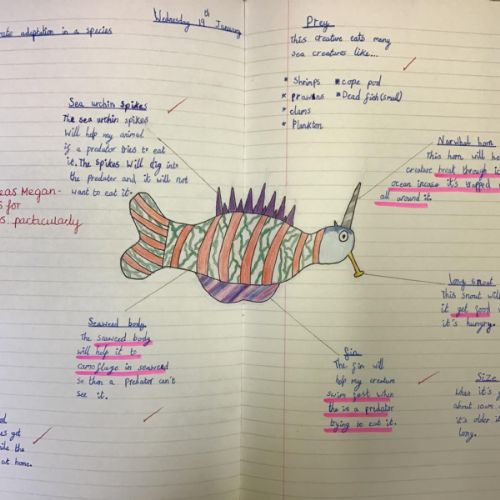 Wednesday 19th January
adaptation in a species
Prey
this creature eats many
sea creatures like...
Shrimps
cope pod
prawns
Dead fish (small)
clams
Plankton
Sea urchin spikes
The sea urchin spikes
Will help my animal
if a predator tries to eat
it. The spikes will dig into
the predator and it will not
want to eat it.
eas Megan-
for
particularly
Narwhal horn
This horn will he
creature break through i
ocean incase it's trapped
all around it.
long snout
This snout will
it get food w
it's hungry.
Seaweed body
The seaweed body
will help it to
camoflage in seaweed
so then a predator can't
see it.
fin
The fin will
help my creature
swim fast when
the is a predator
trying to eat it.
Size
when it's
about 10cm
it's older it
long.
es get
ile the
at home.